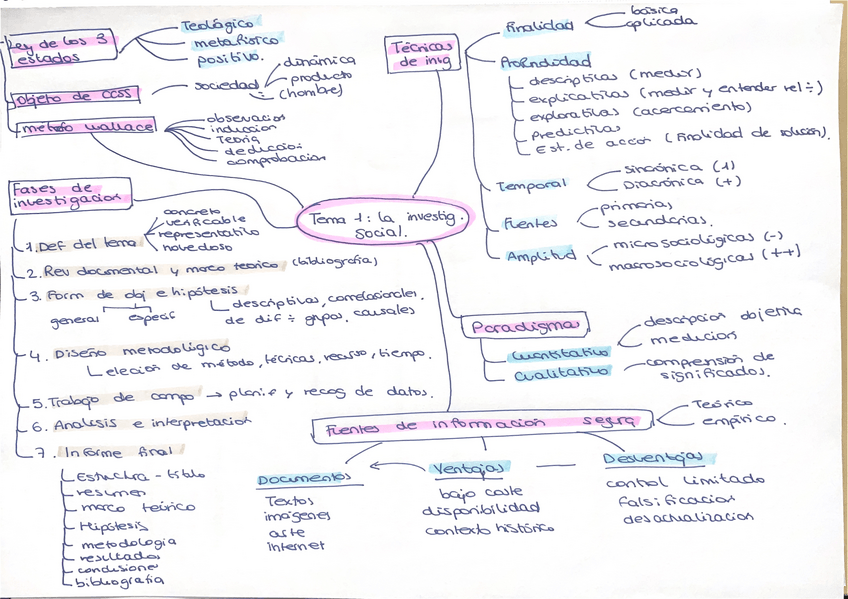 Ley de los 3
estados
Teológico
metafísico
positivo.
Objeto de CCSS
sociedad
dinámica
producto
(hombre)
metodo wallace
observacion
induccion
Teoria
deduccion
comprobacion
Técnicas
de invg
Finalidad
básica
aplicada
Profundidad
descriptivas (medir)
explicativas (medir y entender rel ÷)
explorativas (acercamiento)
Predictivas
Est. de accion (finalidad de solución).
Temporal
sincrónica (1)
Diacrónica (+)
Fuentes
primarias
secundarias.
Amplitud
microsociológicas (-)
macrosociológicas (++)
Tema 1: la investig.
social.
Fases de
investigacion
1. Def del tema
concreto
verificable
representativo
novedoso
2. Rev documental y marco teorico (bibliografia)
3. Form de obj e hipótesis
general especif
descriptivas, correlacionales,
de dif ÷ grupos, causales
4. Diseño metodológico
elecion de método, técnicas, recurso, tiempo.
5. Trabajo de campo → planif y recog de datos.
6. Analisis e interpretacion
7. Informe final
Estructura - titulo
resumen
marco teórico
Hipótesis
metodologia
resultados
condusione
bibliografia
Paradigma
Cuantitativo
descripcion objetiva
medicion
Cualitativo
comprensión de
significados.
Fuentes de informacion segra
Teórico
empirico.
Documentos
Textos
imágenes
arte
internet
Ventajas
bajo coste
disponibilidad
contexto histórico
Desventajas
control limitado
falsificacion
desactualizacion